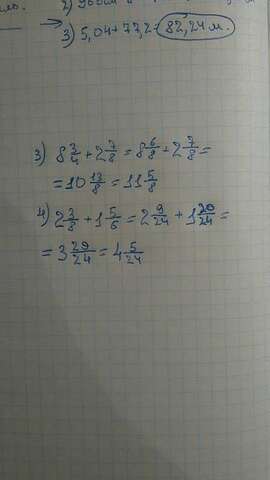 3) 5,04+77,2=82,24 м.
3) 8 3/4 + 2 7/8 = 8 6/8 + 2 7/8 =
= 10 13/8 = 11 5/8
4) 2 3/8 + 1 5/6 = 2 9/24 + 1 20/24 =
= 3 29/24 = 4 5/24